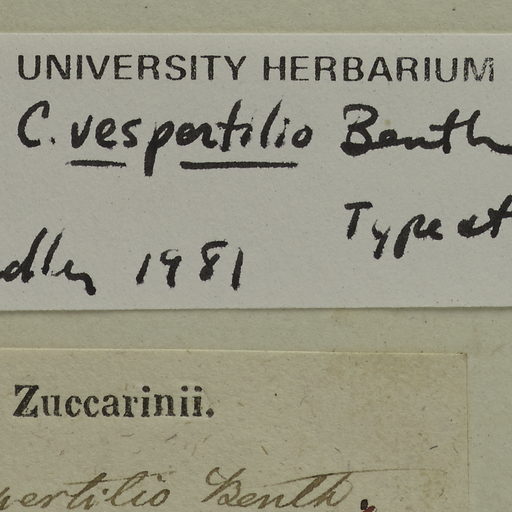 UNIVERSITY HERBARIUM
C. vespertilio Benth
Type at
dley 1981
Zuccarinii.
pertilio Benth.